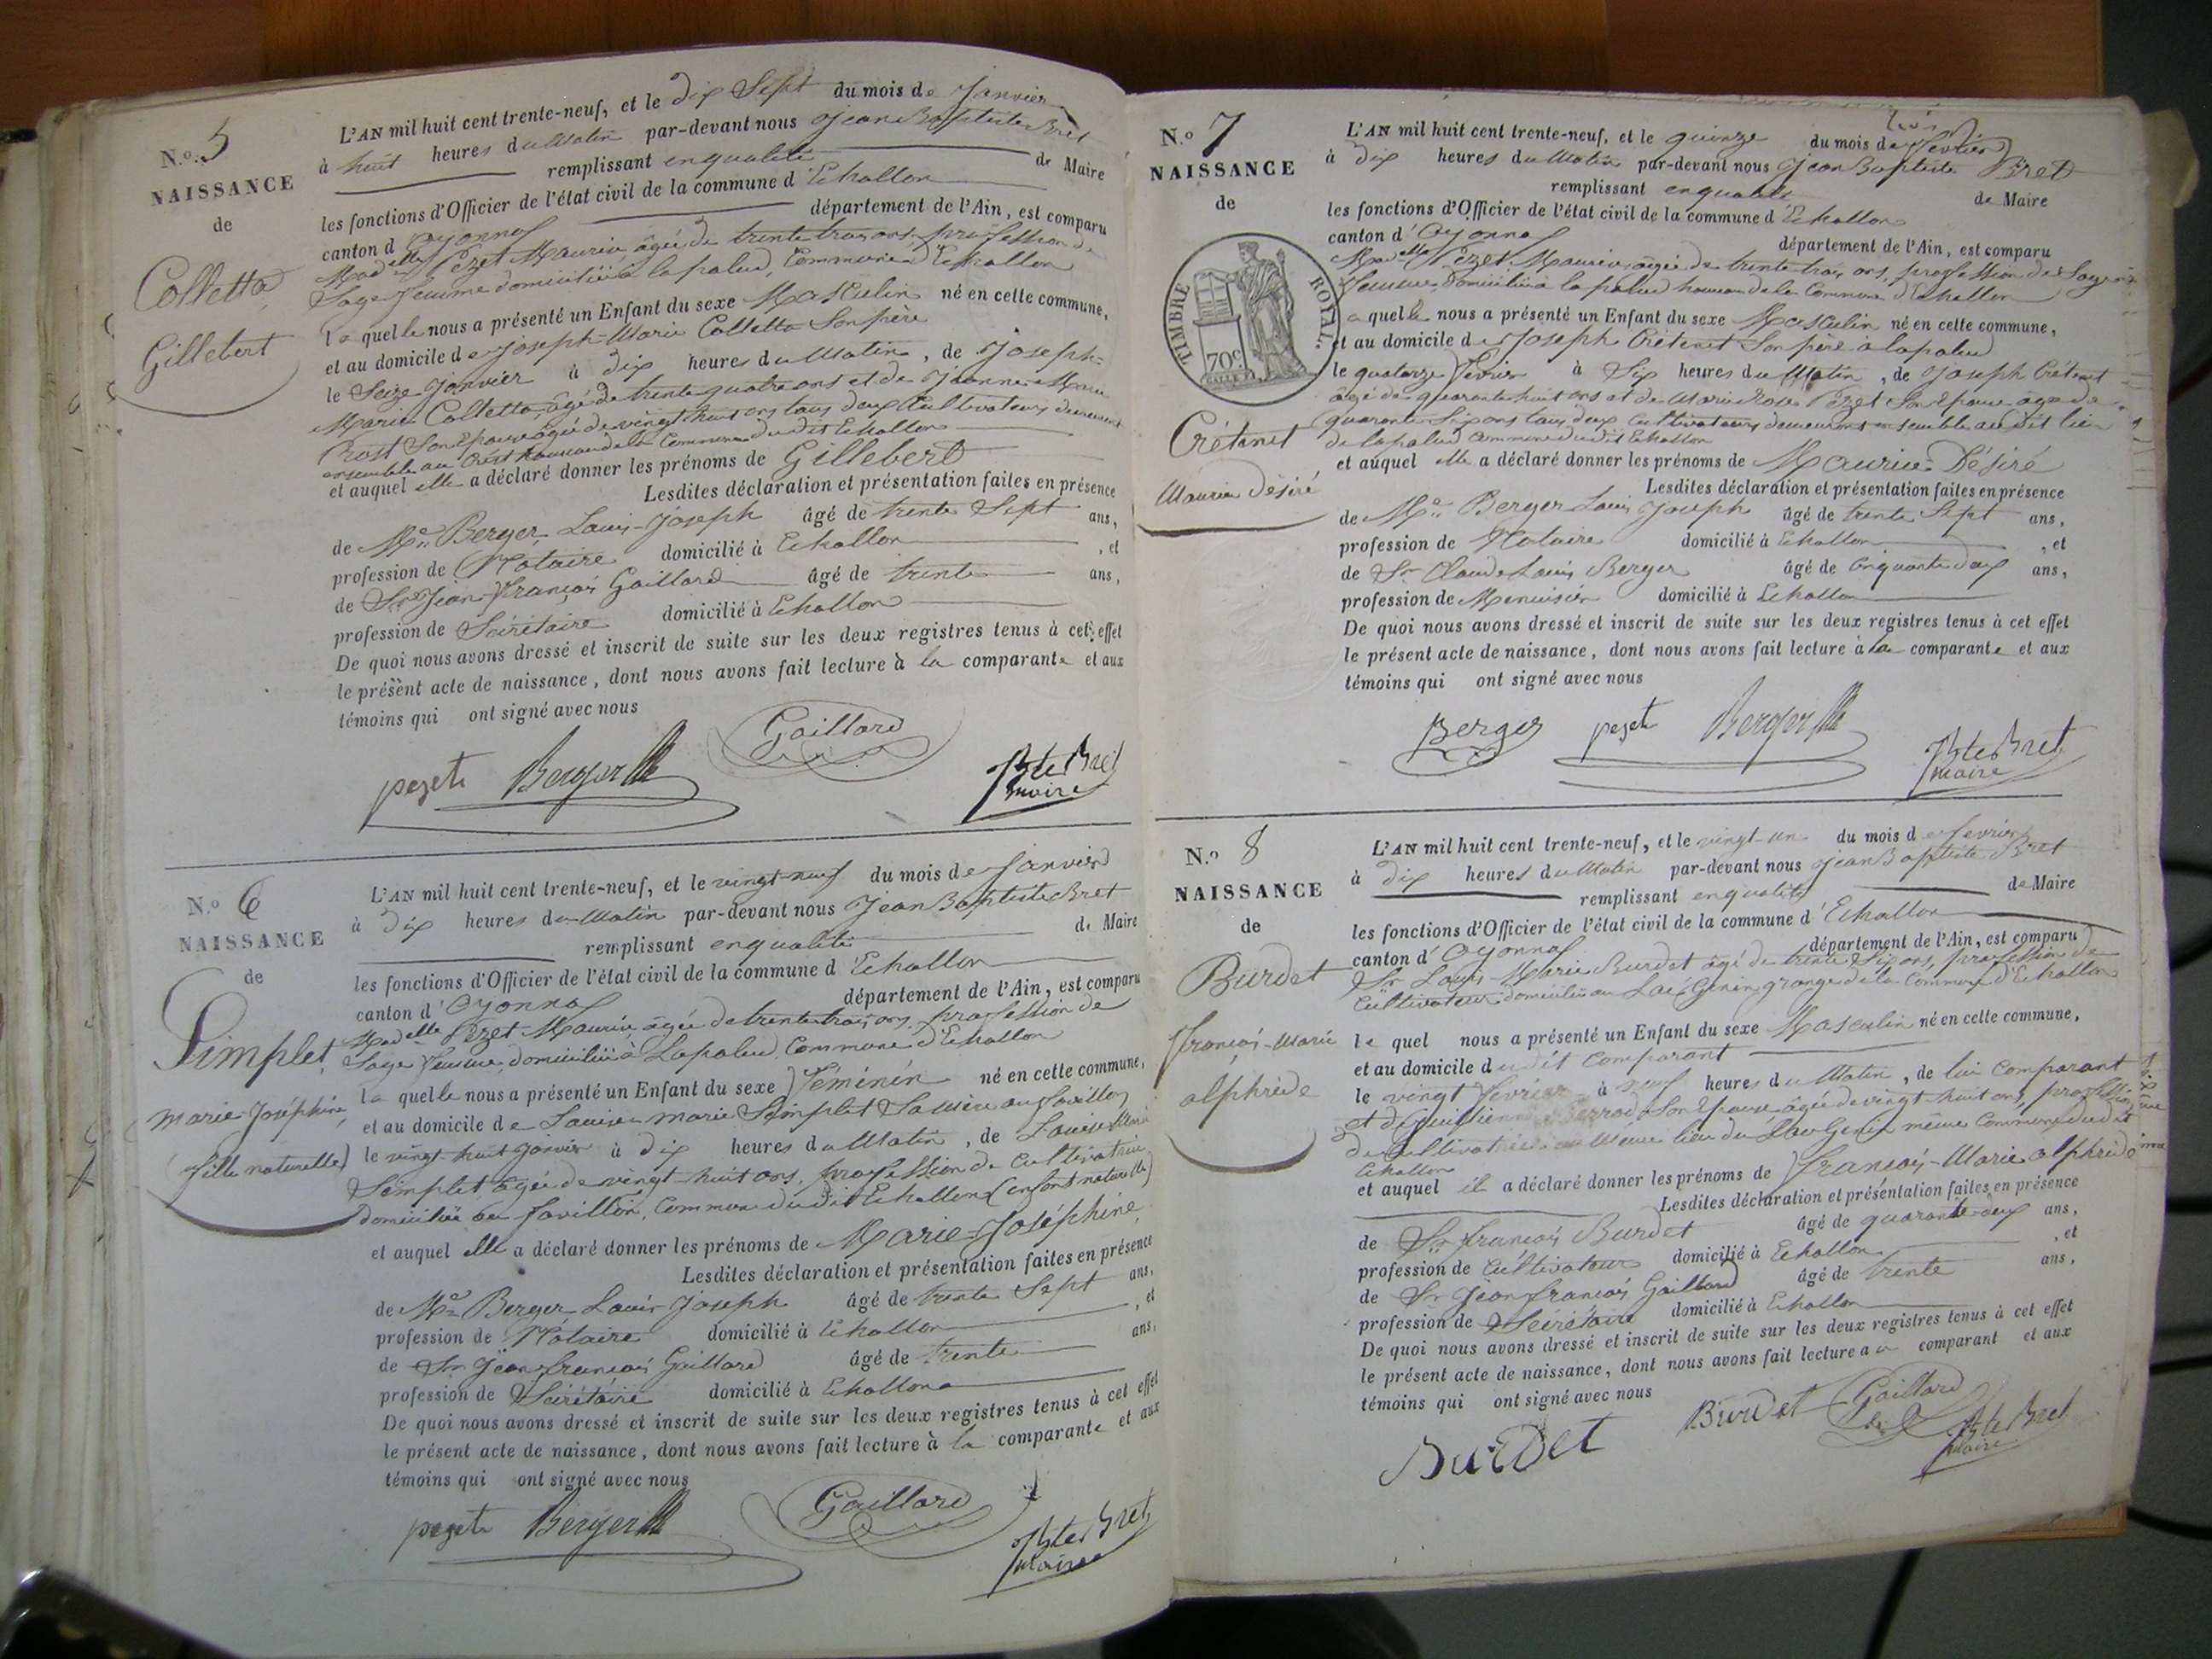 N.o 5
NAISSANCE
de
Colletta
Gillebert
L'AN mil huit cent trente-neuf, et le dix Sept du mois de Janvier
à huit heures du Matin par-devant nous Jean Baptiste Bret
remplissant en qualité de Maire
les fonctions d'Officier de l'état civil de la commune d'Echallon
canton d'Oyonnax département de l'Ain, est comparu
Madelle Pezet Maurice, âgée de trente trois ans, profession de
Sage femme domiciliée à lapalud, Commune d'Echallon
laquelle nous a présenté un Enfant du sexe Masculin né en cette commune,
et au domicile de Joseph-Marie Colletta Son père
le Seize Janvier à dix heures du Matin, de Joseph-
Marie Colletta, âgé de trente quatre ans et de Jeanne Marie
Prost Son Epouse âgée de vingt huit ans tous deux Cultivateurs demeurant
ensemble au Crêt hameau de la Commune dudit Echallon
et auquel elle a déclaré donner les prénoms de Gillebert
Lesdites déclaration et présentation faites en présence
de Me Berger Louis-Joseph âgé de trente Sept ans,
profession de Notaire domicilié à Echallon, et
de Sr Jean-François Gaillard âgé de trente ans,
profession de Sécrétaire domicilié à Echallon
De quoi nous avons dressé et inscrit de suite sur les deux registres tenus à cet effet
le présent acte de naissance, dont nous avons fait lecture à la comparante et aux
témoins qui ont signé avec nous
pezet Berger Gaillard JBte Bret
maire
N.o 6
NAISSANCE
de
Simplet
Marie-Joséphine
(fille naturelle)
L'AN mil huit cent trente-neuf, et le vingt-neuf du mois de Janvier
à Dix heures du Matin par-devant nous Jean Baptiste Bret
remplissant en qualité de Maire
les fonctions d'Officier de l'état civil de la commune d'Echallon
canton d'Oyonnax département de l'Ain, est comparu
Madelle Pezet Maurice, âgée de trente trois ans, profession de
Sage femme, domiciliée à Lapalud, Commune d'Echallon
laquelle nous a présenté un Enfant du sexe Féminin né en cette commune,
et au domicile de Louise-marie Simplet Sa mère au favillon
le vingt-huit Janvier à dix heures du Matin, de Louise Marie
Simplet âgée de vingt-huit ans, profession de Cultivatrice
domiciliée au favillon, Commune dudit Echallon (enfant naturelle)
et auquel elle a déclaré donner les prénoms de Marie-Joséphine
Lesdites déclaration et présentation faites en présence
de Me Berger Louis Joseph âgé de trente Sept ans,
profession de Notaire domicilié à Echallon, et
de Sr Jean françois Gaillard âgé de trente ans,
profession de Sécrétaire domicilié à Echallon
De quoi nous avons dressé et inscrit de suite sur les deux registres tenus à cet effet
le présent acte de naissance, dont nous avons fait lecture à la comparante et aux
témoins qui ont signé avec nous
pezet Berger Gaillard JBte Bret
Maire
N.o 7
NAISSANCE
de
TIMBRE ROYAL.
70c
Crétenet
Maurice Désiré
L'AN mil huit cent trente-neuf, et le quinze du mois de février
à Dix heures du Matin par-devant nous Jean Baptiste Bret
remplissant en qualité de Maire
les fonctions d'Officier de l'état civil de la commune d'Echallon
canton d'Oyonnax département de l'Ain, est comparu
Madelle Pezet Maurice, âgée de trente trois ans, profession de Sage
femme, domiciliée à la palud hameau de la Commune d'Echallon
laquelle nous a présenté un Enfant du sexe Masculin né en cette commune,
et au domicile de Joseph Crétenet Son père à lapalud
le quatorze février à Six heures du Matin, de Joseph Crétenet
âgé de quarante huit ans et de Marie Rose Pezet Son Epouse âgée de
quarante Six ans tous deux Cultivateurs demeurant ensemble audit lieu
de lapalud Commune dudit Echallon
et auquel elle a déclaré donner les prénoms de Maurice-Désiré
Lesdites déclaration et présentation faites en présence
de Me Berger Louis Joseph âgé de trente Sept ans,
profession de Notaire domicilié à Echallon, et
de Sr Claude Louis Berger âgé de Cinquante deux ans,
profession de Menuisier domicilié à Echallon
De quoi nous avons dressé et inscrit de suite sur les deux registres tenus à cet effet
le présent acte de naissance, dont nous avons fait lecture à la comparante et aux
témoins qui ont signé avec nous
Berger pezet Berger JBte Bret
maire
N.o 8
NAISSANCE
de
Burdet
françois-Marie
alphrède
L'AN mil huit cent trente-neuf, et le vingt-un du mois de fevrier
à dix heures du Matin par-devant nous Jean Baptiste Bret
remplissant en qualité de Maire
les fonctions d'Officier de l'état civil de la commune d'Echallon
canton d'Oyonnax département de l'Ain, est comparu
Sr Louis-Marie Burdet âgé de trente Six ans, profession de
Cultivateur domicilié au Lac Genin grange de la Commune d'Echallon
lequel nous a présenté un Enfant du sexe Masculin né en cette commune,
et au domicile dudit Comparant
le vingt février à neuf heures du Matin, de lui Comparant
et de Son Epouse âgée de vingt-huit ans, profession
de Cultivatrice au Même lieu du Lac Genin même Commune dudit
Echallon
et auquel il a déclaré donner les prénoms de françois-Marie alphrède
Lesdites déclaration et présentation faites en présence
de Sr françois Burdet âgé de quarante-deux ans,
profession de Cultivateur domicilié à Echallon, et
de Sr Jean françois Gaillard âgé de trente ans,
profession de Sécrétaire domicilié à Echallon
De quoi nous avons dressé et inscrit de suite sur les deux registres tenus à cet effet
le présent acte de naissance, dont nous avons fait lecture au comparant et aux
témoins qui ont signé avec nous
Burdet Burdet Gaillard JBte Bret
Maire